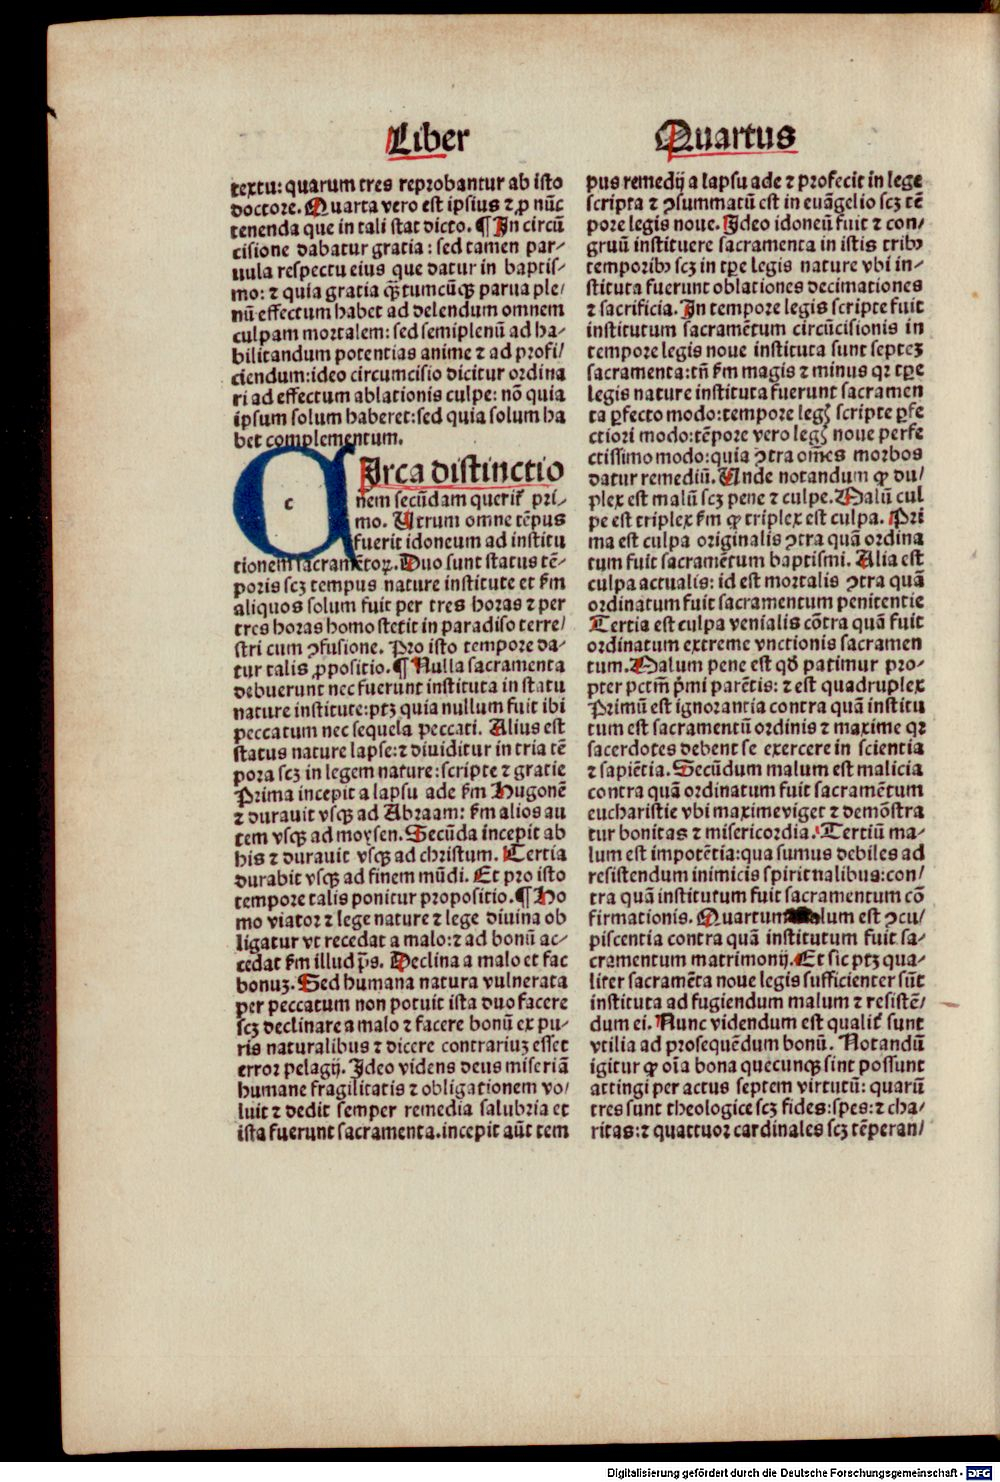 Liber
textu: quarum tres reprobantur ab isto
doctore. Quarta vero est ipsius ⁊ ꝓ nūc
tenenda que in tali stat dicto. ¶ In circū
cisione dabatur gratia: sed tamen par⸗
uula respectu eius que datur in baptis⸗
mo: ⁊ quia gratia q̄ꝫtumcūqꝫ parua ple/
nū effectum habet ad delendum omnem
culpam mortalem: sed semiplenū ad ha⸗
bilitandum potentias anime ⁊ ad profi/
ciendum: ideo circumcisio dicitur ordina
ri ad effectum ablationis culpe: nō quia
ipsum solum haberet: sed quia solum ha
bet complementum.
c
Irca distinctio
nem secūdam querit̉ pri⸗
mo. Utrum omne tēpus
fuerit idoneum ad institu
tionem sacramētoꝝ. Duo sunt status tē⸗
poris scꝫ tempus nature institute et ẜm
aliquos solum fuit per tres horas ⁊ per
tres horas homo stetit in paradiso terre/
stri cum ꝯfusione. Pro isto tempore da⸗
tur talis ꝓpositio. ¶ Nulla sacramenta
debuerunt nec fuerunt instituta in statu
nature institute: ptꝫ quia nullum fuit ibi
peccatum nec sequela peccati. Alius est
status nature lapse: ⁊ diuiditur in tria tē
pora scꝫ in legem nature: scripte ⁊ gratie
Prima incepit a lapsu ade ẜm Hugonē
⁊ durauit vsqꝫ ad Abraam: ẜm alios au
tem vsqꝫ ad moysen. Secūda incepit ab
his ⁊ durauit vsqꝫ ad christum. Tertia
durabit vsqꝫ ad finem mūdi. Et pro isto
tempore talis ponitur propositio. ¶ Ho
mo viator ⁊ lege nature ⁊ lege diuina ob
ligatur vt recedat a malo: ⁊ ad bonū ac⸗
cedat ẜm illud p̄s. Declina a malo et fac
bonuꝫ. Sed humana natura vulnerata
per peccatum non potuit ista duo facere
scꝫ declinare a malo ⁊ facere bonū ex pu⸗
ris naturalibus ⁊ dicere contrariuꝫ esset
error pelagij. Ideo videns deus miseriā
humane fragilitatis ⁊ obligationem vo/
luit ⁊ dedit semper remedia salubria et
ista fuerunt sacramenta. incepit aūt tem
Quartus
pus remedij a lapsu ade ⁊ profecit in lege
scripta ⁊ ꝯsummatū est in euāgelio scꝫ tē
pore legis noue. Ideo idoneū fuit ⁊ con/
gruū instituere sacramenta in istis tribꝰ
temporibꝰ scꝫ in tꝑe legis nature vbi in⸗
stituta fuerunt oblationes decimationes
⁊ sacrificia. In tempore legis scripte fuit
institutum sacramētum circūcisionis in
tempore legis noue instituta sunt septeꝫ
sacramenta: tn̄ ẜm magis ⁊ minus qꝛ tꝑe
legis nature instituta fuerunt sacramen
ta ꝑfecto modo: tempore legꝭ scripte ꝑfe
ctiori modo: tēpore vero legꝭ noue perfe
ctissimo modo: quia ꝯtra om̄es morbos
datur remediū. Unde notandum ꝙ du/
plex est malū scꝫ pene ⁊ culpe. Malū cul
pe est triplex ẜm ꝙ triplex est culpa. Pri
ma est culpa originalis ꝯtra quā ordina
tum fuit sacramētum baptismi. Alia est
culpa actualis: id est mortalis ꝯtra quā
ordinatum fuit sacramentum penitentie
Tertia est culpa venialis cōtra quā fuit
ordinatum extreme vnctionis sacramen
tum. Malum pene est qd̄ patimur pro⸗
pter pctm̄ p̄mi parētis: ⁊ est quadruplex
Primū est ignorantia contra quā institu
tum est sacramentū ordinis ⁊ maxime qꝛ
sacerdotes debent se exercere in scientia
⁊ sapiētia. Secūdum malum est malicia
contra quā ordinatum fuit sacramētum
eucharistie vbi maxime viget ⁊ demōstra
tur bonitas ⁊ misericordia. Tertiū ma⸗
lum est impotētia: qua sumus debiles ad
resistendum inimicis spiritualibus: con/
tra quā institutum fuit sacramentum cō
firmationis. Quartum malum est ꝯcu/
piscentia contra quā institutum fuit sa⸗
cramentum matrimonij. Et sic ptꝫ qua⸗
liter sacramēta noue legis sufficienter sūt
instituta ad fugiendum malum ⁊ resistē/
dum ei. Nunc videndum est qualit̉ sunt
vtilia ad prosequēdum bonū. Notandū
igitur ꝙ oīa bona quecunqꝫ sint possunt
attingi per actus septem virtutū: quarū
tres sunt theologice scꝫ fides: spes: ⁊ cha⸗
ritas: ⁊ quattuor cardinales scꝫ tēperan/
Digitalisierung gefördert durch die Deutsche Forschungsgemeinschaft - DFG